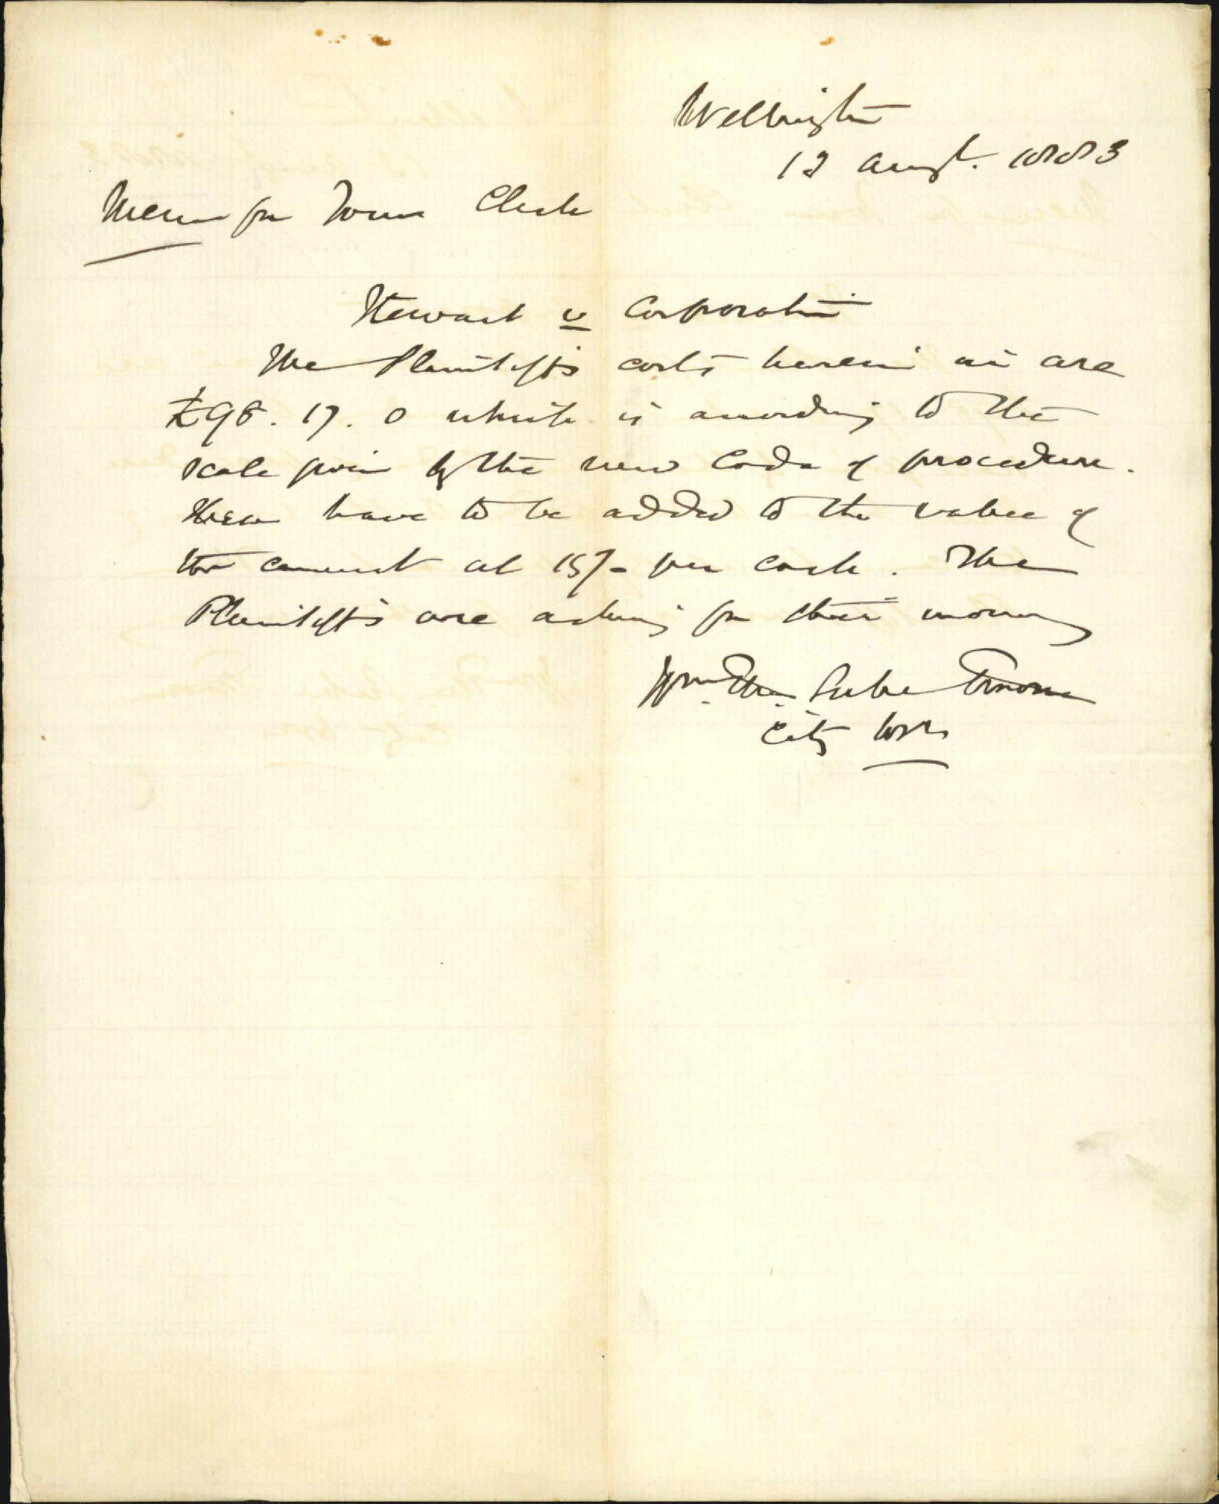 Wellington
12 Augt. 1883
Memo for Town Clerk
Stewart v Corporation
The Plaintiffs costs herein are
£98. 17. 0 which is according to the
scale given by the new Code of procedure.
These have to be added to the value of
the cement at 15/- per cask. The
Plaintiffs are asking for their money
Wm. Thos. Locke Travers
City Solr